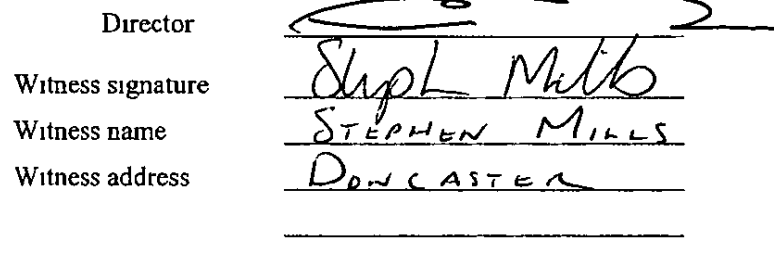 Director
Witness signature Steph Mills
Witness name STEPHEN MILLS
Witness address DONCASTER